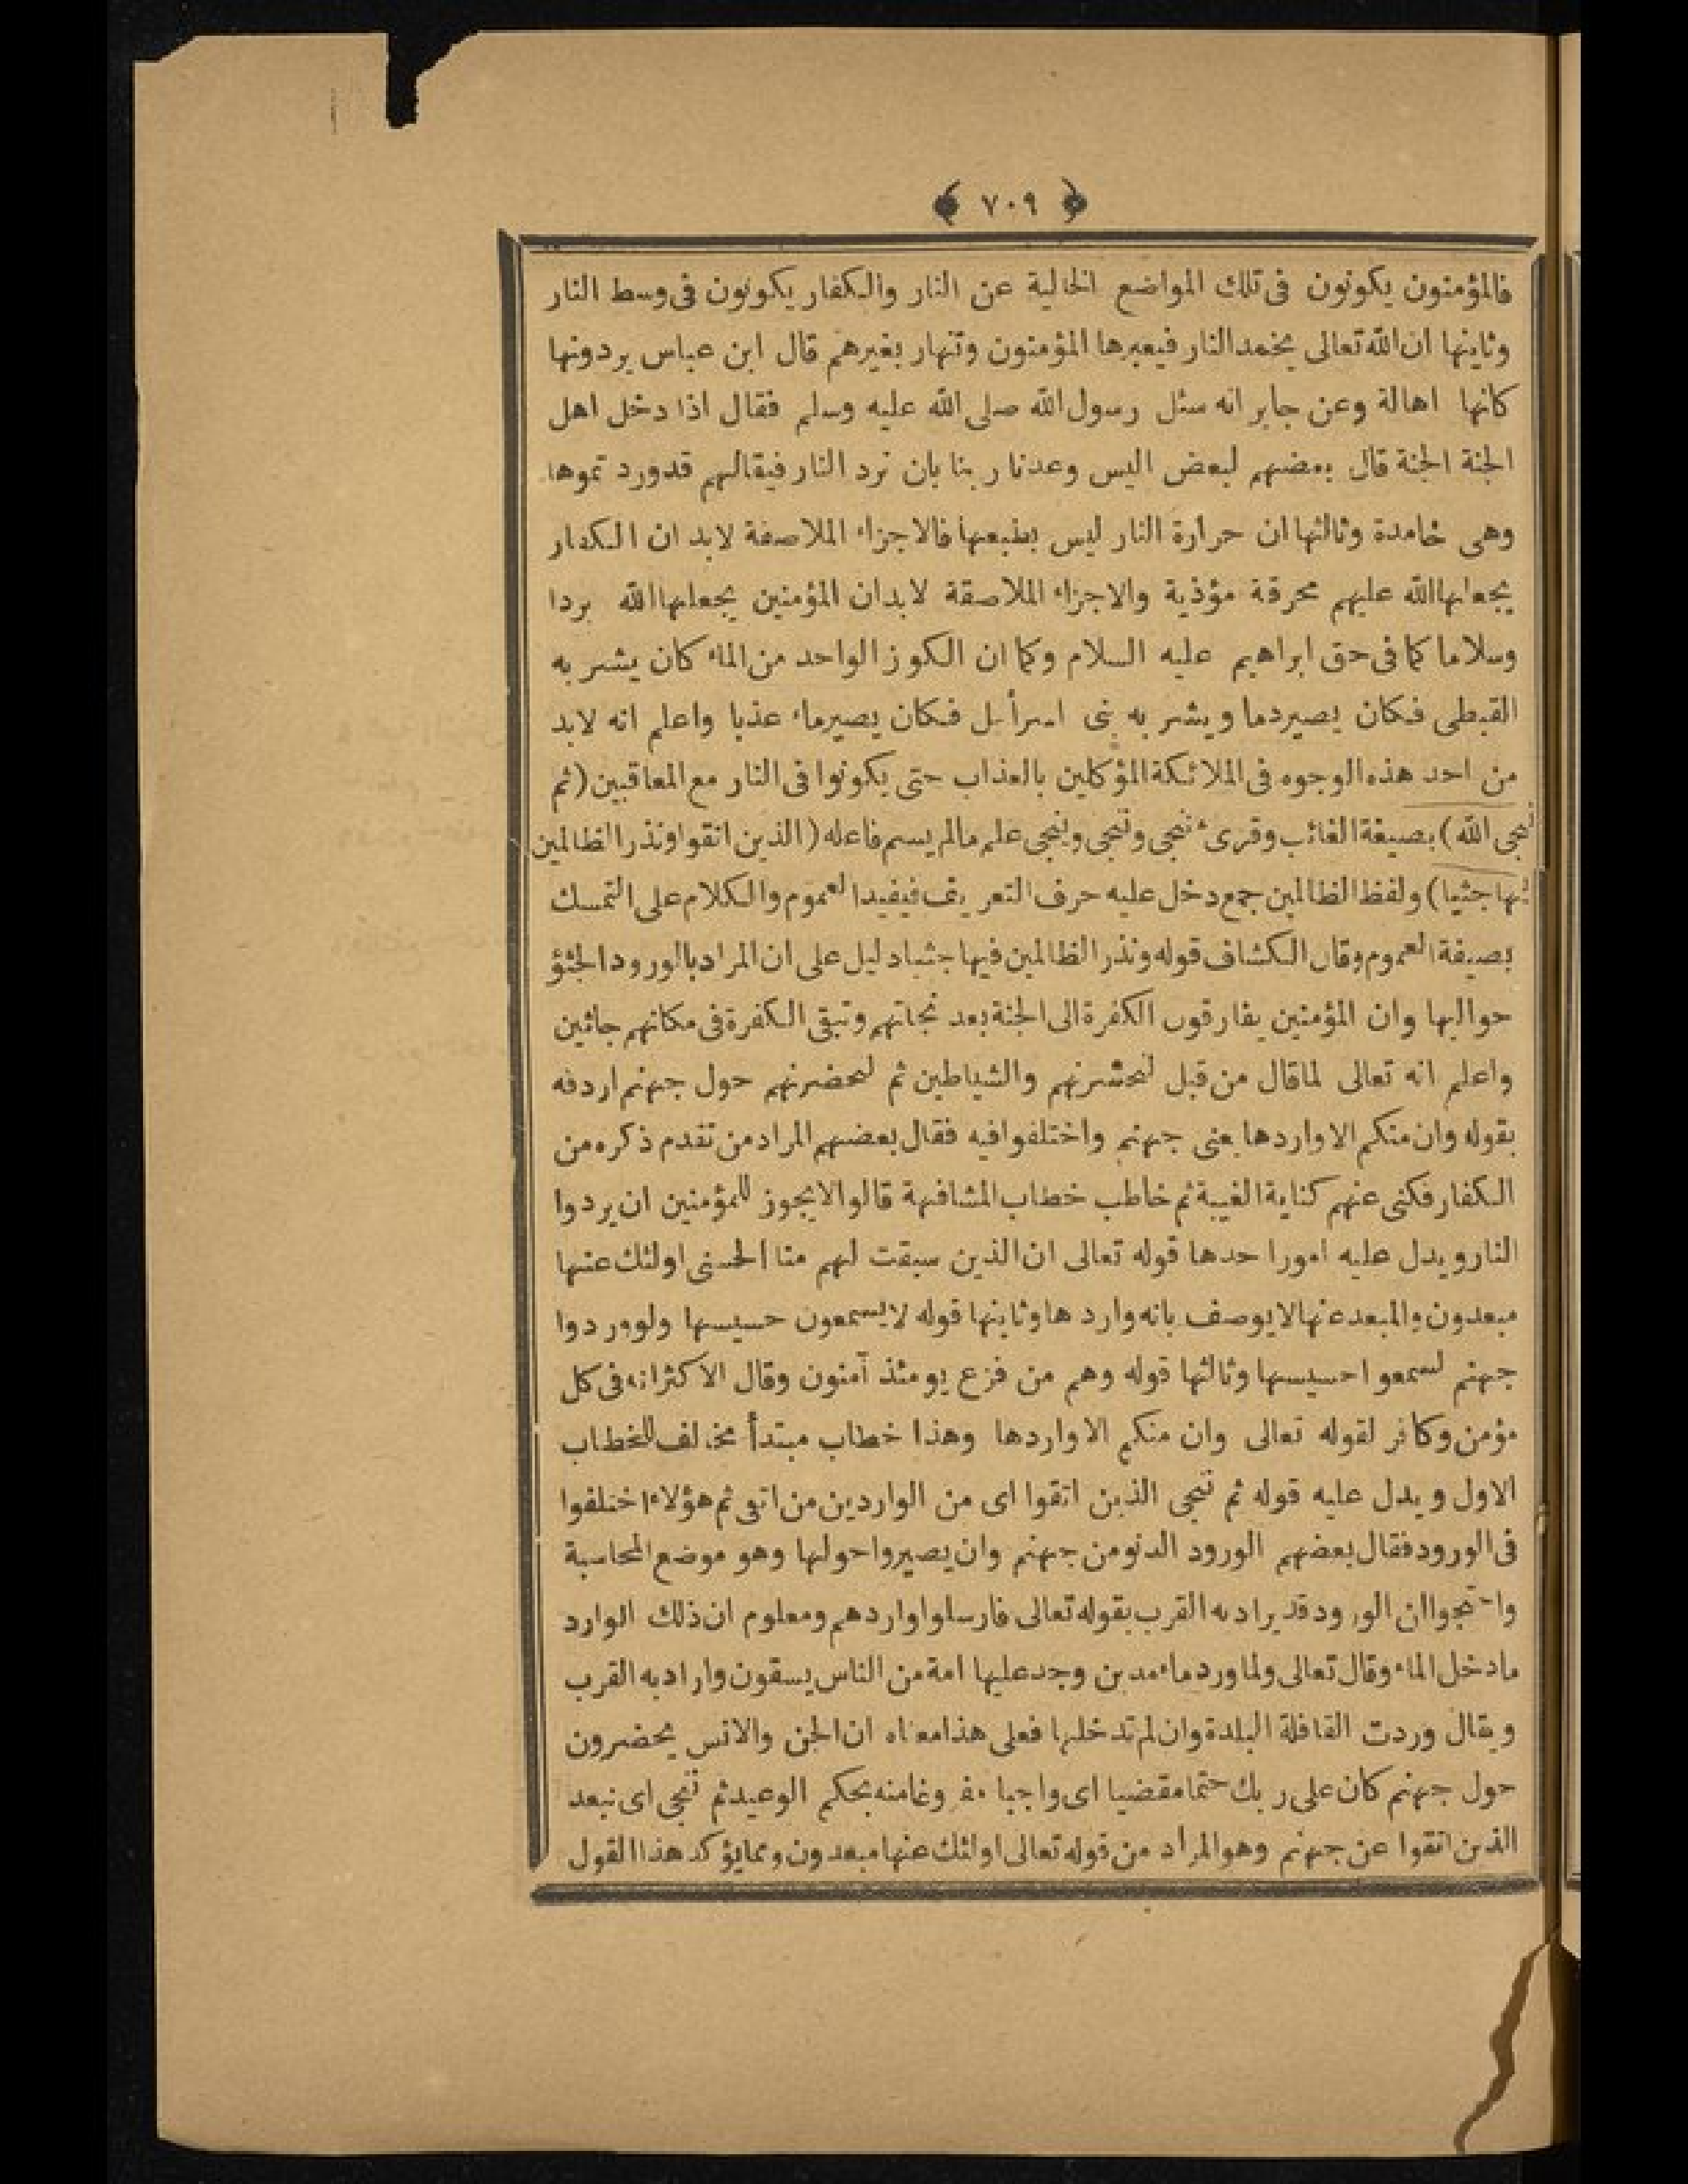 ﴿ ٧٠٩ ﴾
فالمؤمنون يكونون فى تلك المواضع الخالية عن النار والكفار يكونون فى وسط النار
وثاينها ان الله تعالى يخمد النار فيعبرها المؤمنون وتنهار بغيرهم قال ابن عباس يردونها
كانها اهالة وعن جابر انه سئل رسول الله صلى الله عليه وسلم فقال اذا دخل اهل
الجنة الجنة قال بعضهم لبعض اليس وعدنا ربنا بان نرد النار فيقالهم قدورد تموها
وهى خامدة وثالثها ان حرارة النار ليس بطبعها فالاجزاء الملاصقة لابد ان الكفار
يجعلها الله عليهم محرقة مؤذية والاجزاء الملاصقة لابدان المؤمنين يجعلها الله بردا
وسلاما كما فى حق ابراهيم عليه السلام وكما ان الكوز الواحد من الماء كان يشربه
القبطى فكان يصيردما ويشربه بنى اسرأيل فكان يصيرماء عذبا واعلم انه لابد
من احد هذه الوجوه فى الملائكة المؤكلين بالعذاب حتى يكونوا فى النار مع المعاقبين (ثم
ننجى الله) بصيغة الغائب وقرىء ننجى وننجى وينجى على مالم يسم فاعله (الذين اتقوا ونذر الظالمين
فيها جثيا) ولفظ الظالمين جمع دخل عليه حرف التعريف فيفيد العموم والكلام على التمسك
بصيغة العموم وقال الكشاف قوله ونذر الظالمين فيها جثيا دليل على ان المراد بالورود الجثؤ
حواليها وان المؤمنين يفارقون الكفرة الى الجنة بعد نجاتهم وتبقى الكفرة فى مكانهم جاثين
واعلم انه تعالى لما قال من قبل لنحشرنهم والشياطين ثم لنحضرنهم حول جهنم اردفه
بقوله وان منكم الا واردها يعنى جهنم واختلفوا فيه فقال بعضهم المراد من تقدم ذكره من
الكفار فكنى عنهم كناية الغيبة ثم خاطب خطاب المشافهة قالوا لايجوز للمؤمنين ان يردوا
النار ويدل عليه امورا حدها قوله تعالى ان الذين سبقت لهم منا الحسنى اولئك عنها
مبعدون والمبعد عنها لايوصف بانه واردها وثاينها قوله لايسمعون حسيسها ولو وردوا
جهنم لسمعوا حسيسها وثالثها قوله وهم من فزع يومئذ آمنون وقال الاكثر انه فى كل
مؤمن وكافر لقوله تعالى وان منكم الا واردها وهذا خطاب مبتدأ مخالف للخطاب
الاول ويدل عليه قوله ثم ننجى الذين اتقوا اى من الواردين من اتقى ثم هؤلاء اختلفوا
فى الورود فقال بعضهم الورود الدنو من جهنم وان يصيروا حولها وهو موضع المحاسبة
واحتجوا ان الورود قد يراد به القرب بقوله تعالى فارسلوا واردهم ومعلوم ان ذلك الوارد
مادخل الماء وقال تعالى ولما ورد ماء مدين وجد عليها امة من الناس يسقون واراد به القرب
ويقال وردت القافلة البلدة وان لم تدخلها فعلى هذا معناه ان الجن والانس يحضرون
حول جهنم كان على ربك حتما مقضيا اى واجبا مفروغا منه بحكم الوعيد ثم ننجى اى نبعد
الذين اتقوا عن جهنم وهو المراد من قوله تعالى اولئك عنها مبعدون ومما يؤكد هذا القول